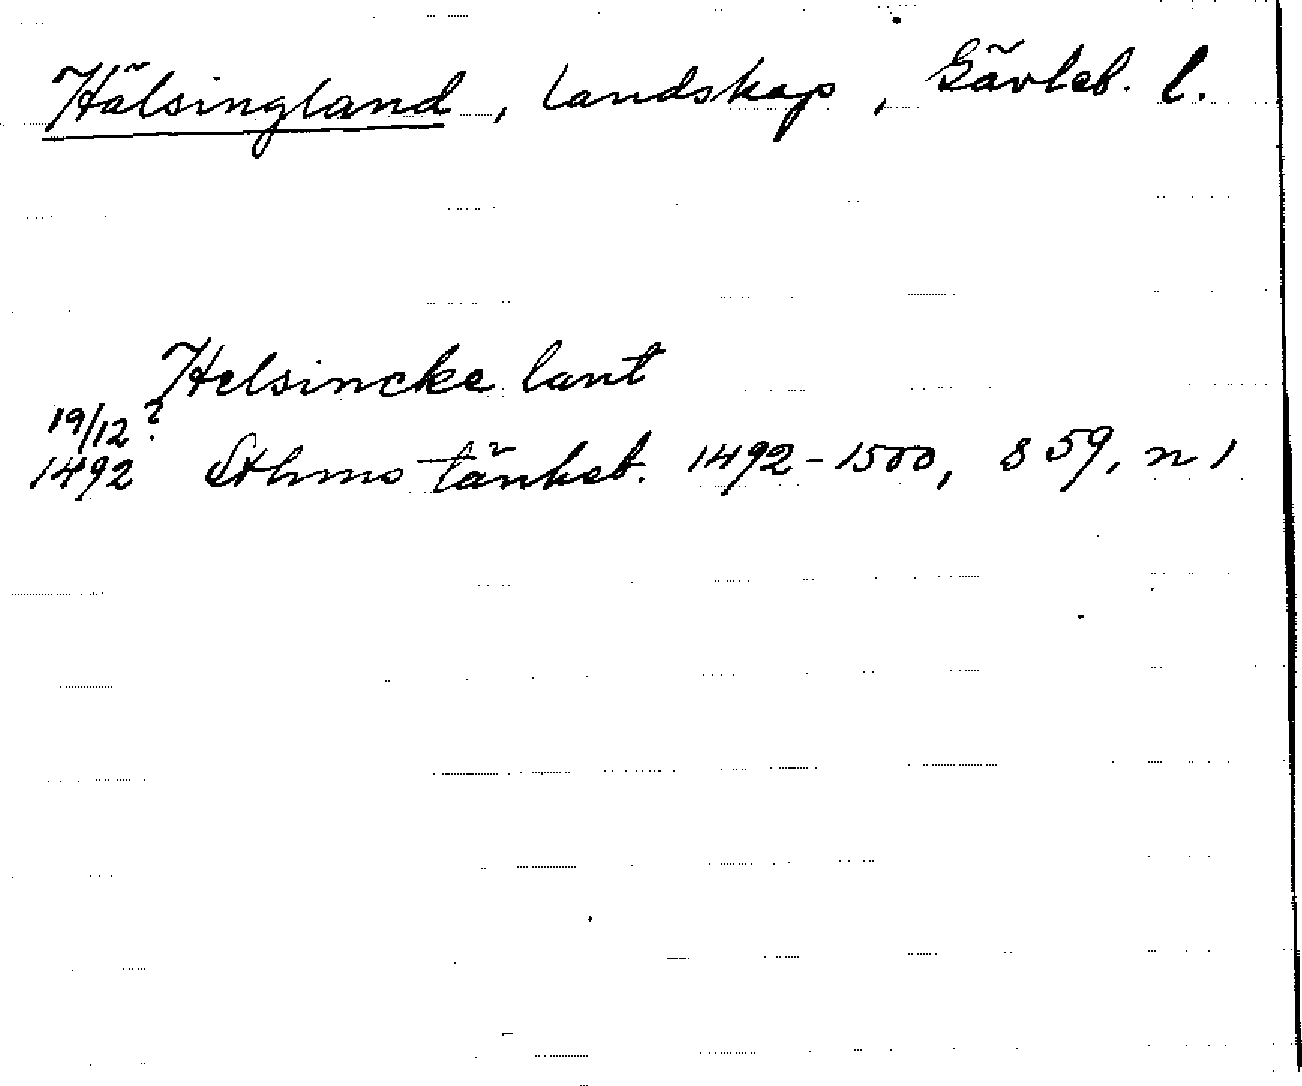 Hälsingland, landskap, Gävleb. l.
Helsincke lant
19/12?
1492 Sthms tänkeb. 1492-1500, s 59, n 1